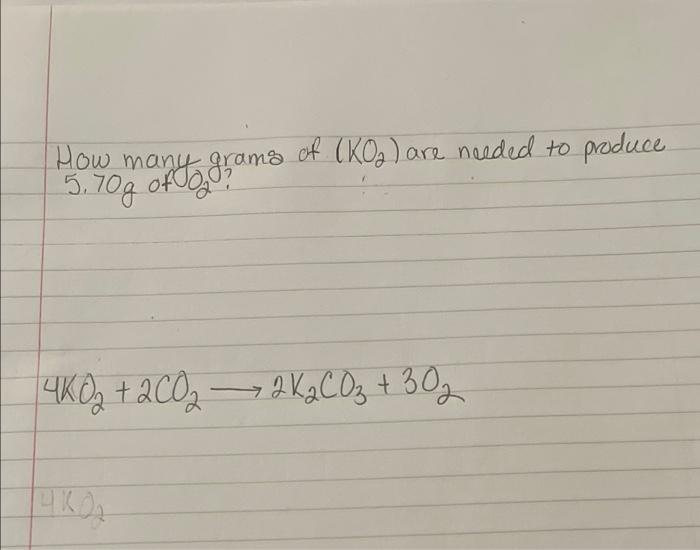 How many grams of (KO₂) are needed to produce
5.70g of O₂?
4KO₂ + 2CO₂ → 2K₂CO₃ + 3O₂
4KO₂